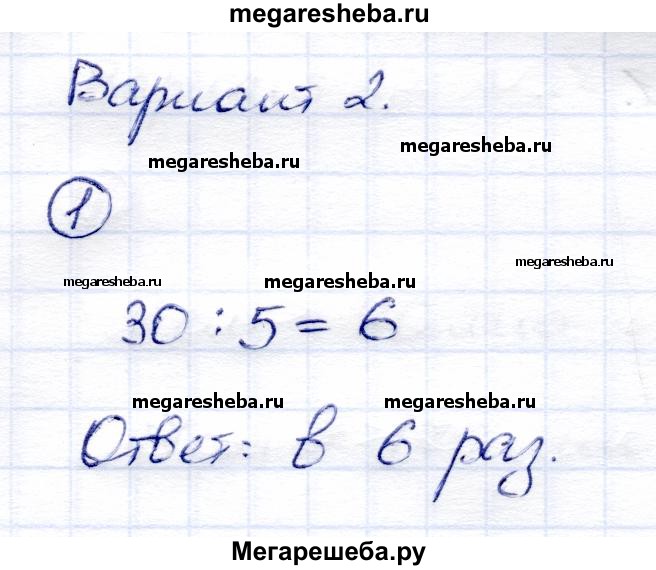 megaresheba.ru
Вариант 2.
megaresheba.ru
megaresheba.ru
1
megaresheba.ru
megaresheba.ru
megaresheba.ru
megaresheba.ru
30 : 5 = 6
megaresheba.ru
megaresheba.ru
Ответ: в 6 раз.
Мегарешеба.ру